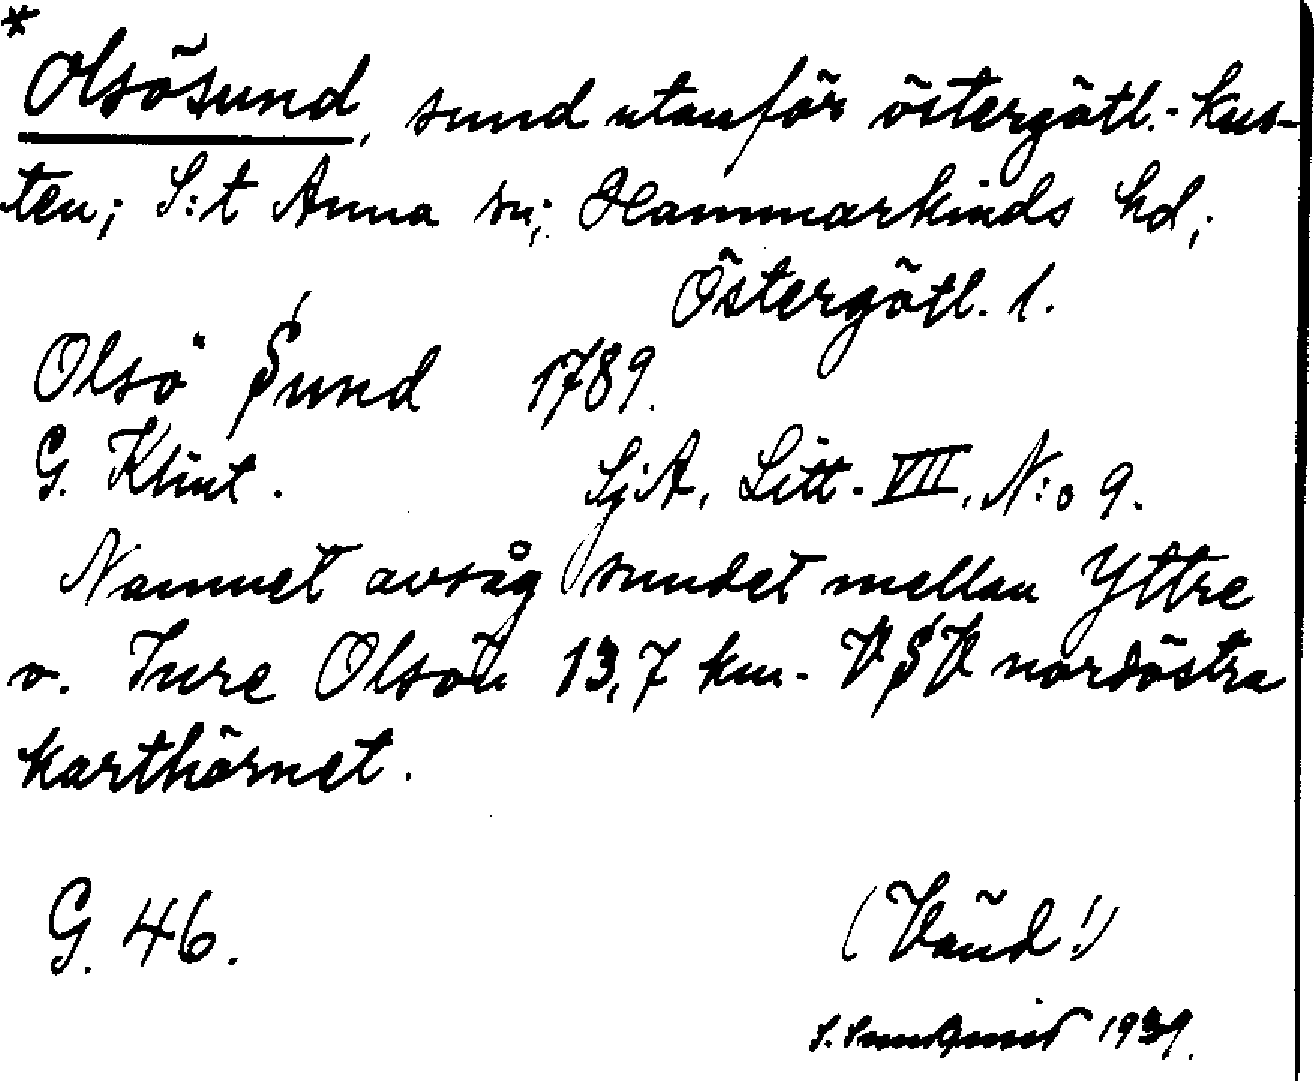 *
Olsösund, sund utanför östergötl.-kus-
ten; S:t Anna sn; Hammarkinds hd;
Östergötl. l.
Olsö Sund 1789.
G. Klint. SjA, Litt. VII, N:o 9.
Namnet avsåg sundet mellan Yttre
o. Inre Olsön 13,7 km. VSV nordöstra
karthörnet.
G. 46.
(Vänd!)
S. 1939.